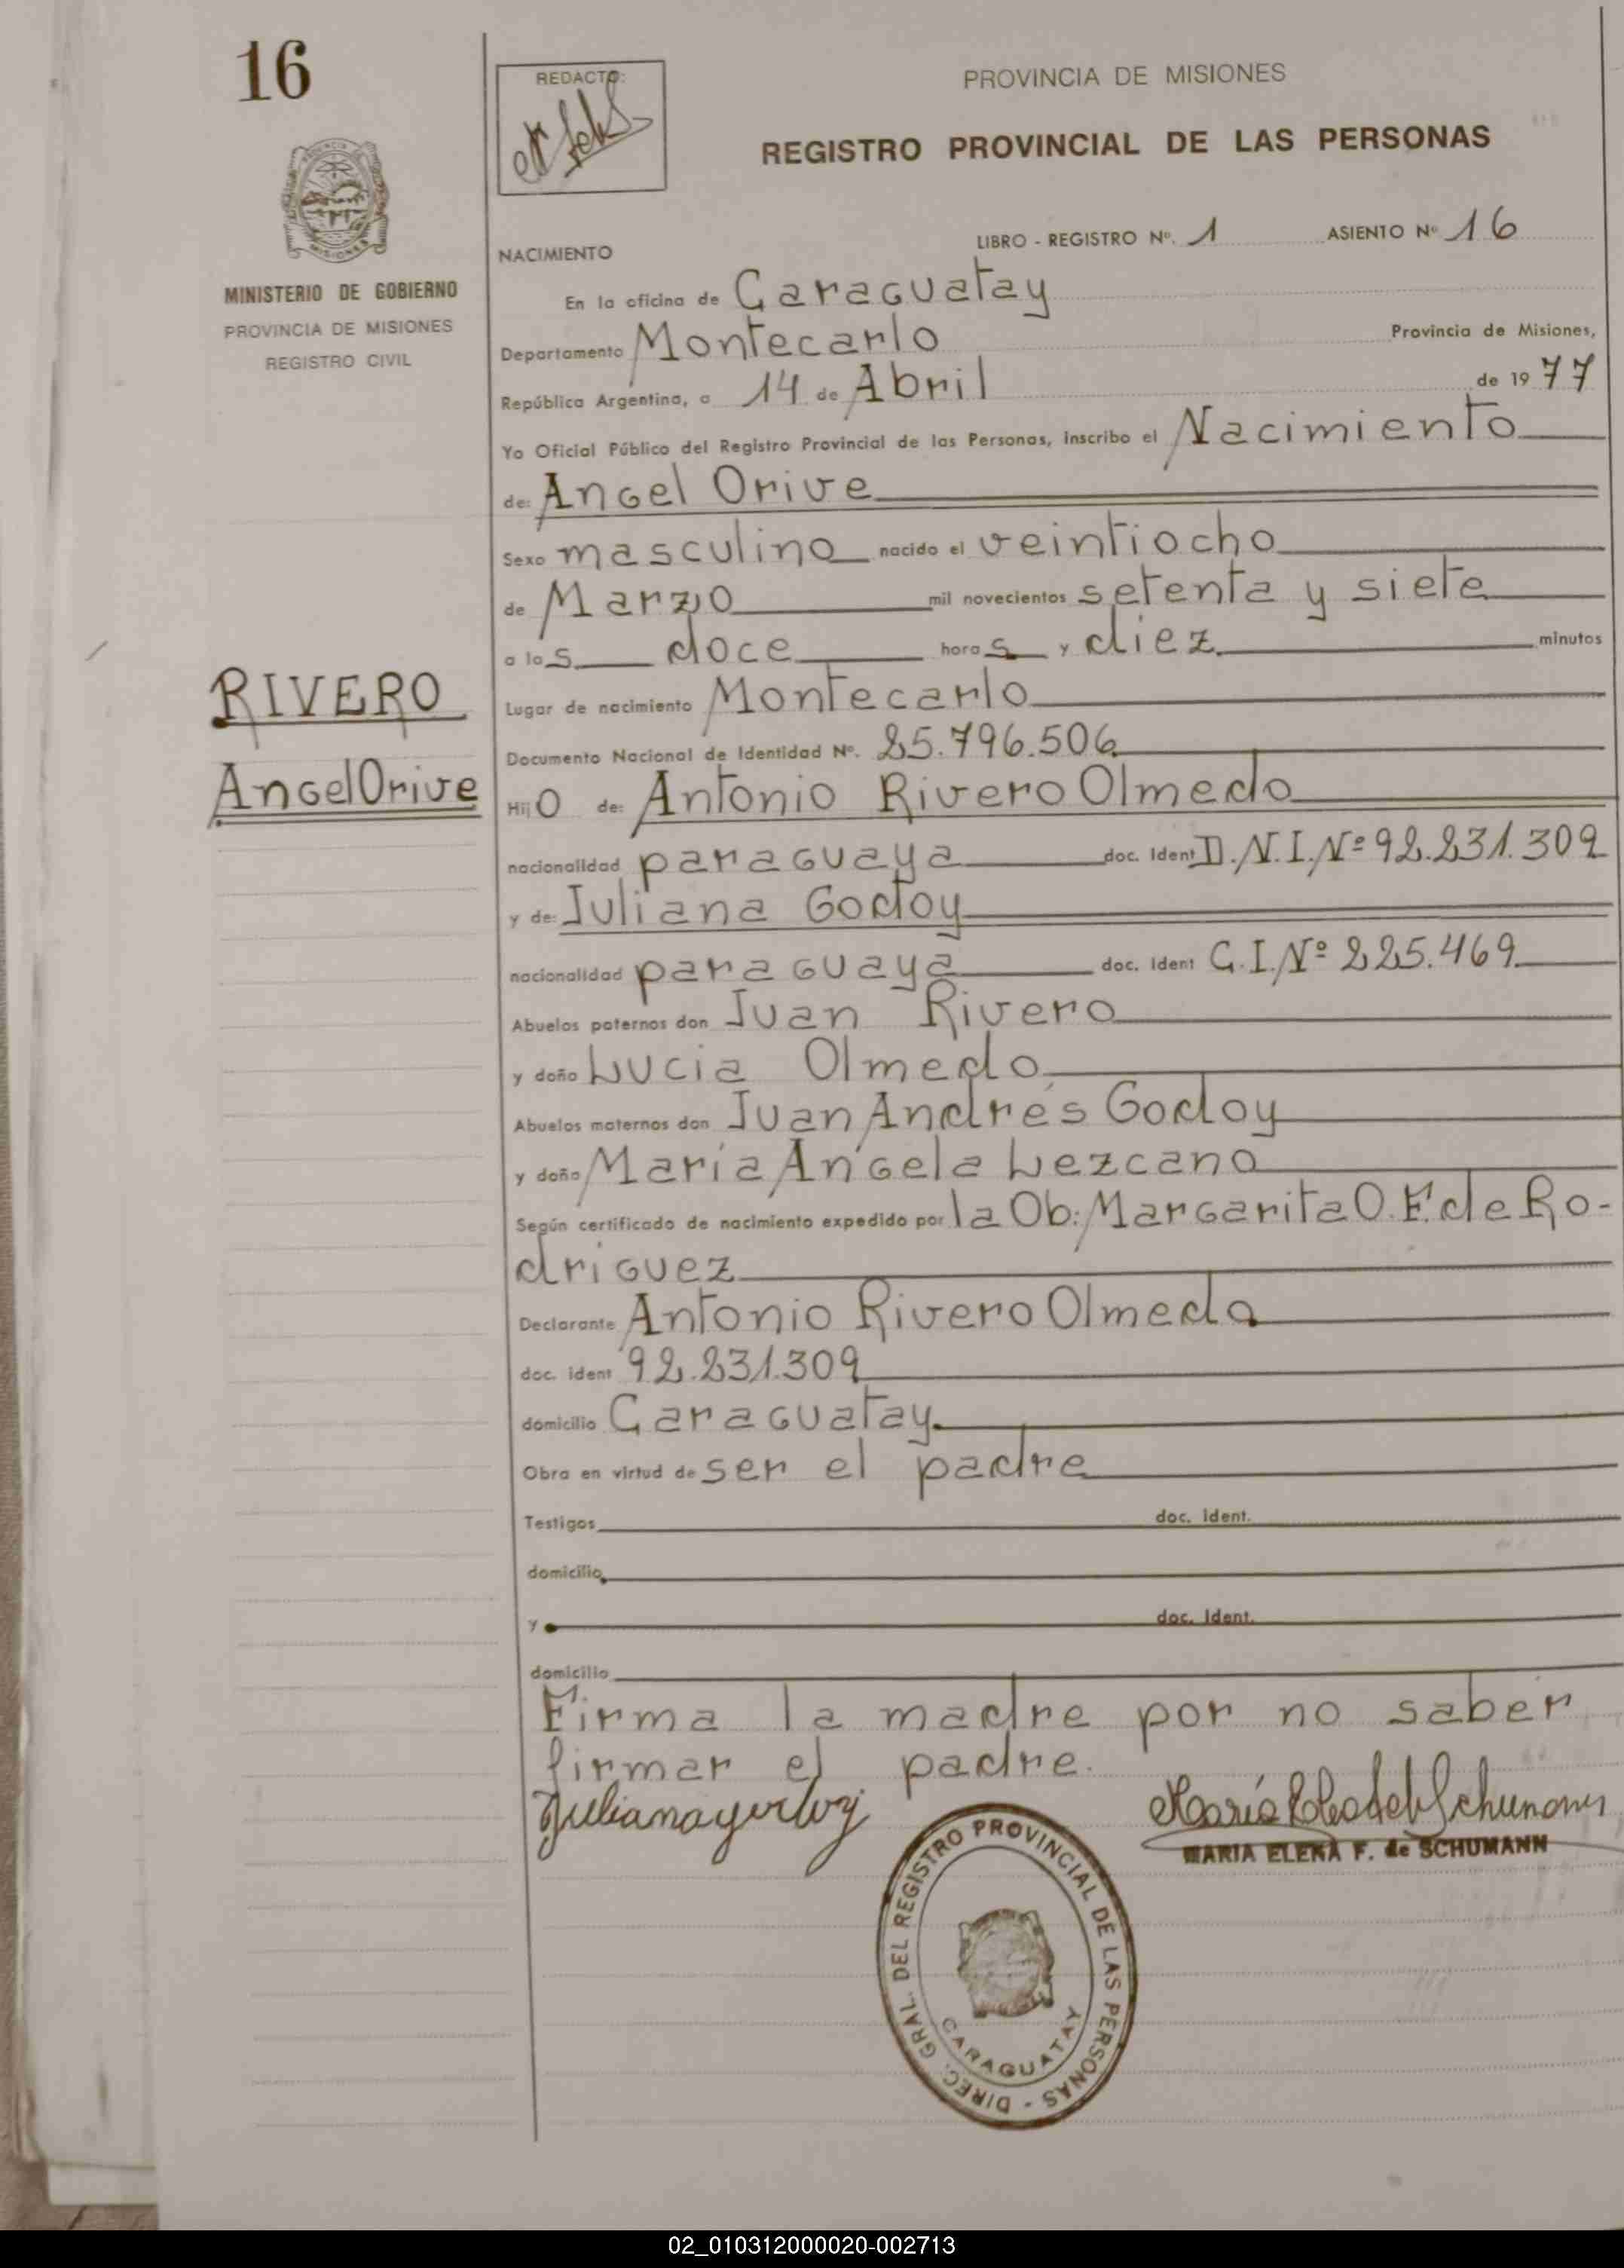 16
REDACTO:
PROVINCIA DE MISIONES
REGISTRO PROVINCIAL DE LAS PERSONAS
PROVINCIA DE
MISIONES
MINISTERIO DE GOBIERNO
PROVINCIA DE MISIONES
REGISTRO CIVIL
NACIMIENTO
LIBRO - REGISTRO Nº. 1 ASIENTO Nº 16
En la oficina de Caraguatay
Departamento Montecarlo Provincia de Misiones,
República Argentina, a 14 de Abril de 1977
Yo Oficial Público del Registro Provincial de las Personas, inscribo el Nacimiento
de: Angel Orive
Sexo masculino nacido el veintiocho
de Marzo mil novecientos setenta y siete
a las doce horas y diez minutos
RIVERO
Angel Orive
Lugar de nacimiento Montecarlo
Documento Nacional de Identidad Nº. 25.796.506
Hijo de: Antonio Rivero Olmedo
nacionalidad paraguaya doc. Ident D.N.I.Nº 92.231.309
y de: Juliana Godoy
nacionalidad paraguaya doc. Ident C.I.Nº 225.469
Abuelos paternos don Juan Rivero
y doña Lucia Olmedo
Abuelos maternos don Juan Andrés Godoy
y doña María Angela Lezcano
Según certificado de nacimiento expedido por la Ob: Margarita O. F. de Ro-
driguez
Declarante Antonio Rivero Olmedo
doc. ident 92.231.309
domicilio Caraguatay
Obra en virtud de ser el padre
Testigos doc. Ident.
domicilio
y doc. Ident.
domicilio
Firma la madre por no saber
firmar el padre.
Juliana godoy
MARIA ELENA F. de SCHUMANN
DIREC. GRAL. DEL REGISTRO PROVINCIAL DE LAS PERSONAS -
CARAGUATAY
02_010312000020-002713